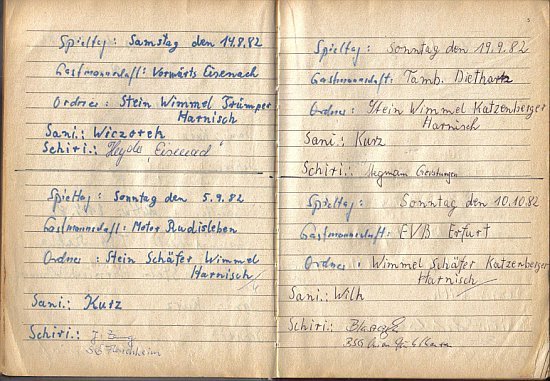 Spieltag: Samstag den 14.8.82
Gastmannschaft: Vorwärts Eisenach
Ordner: Stein Wimmel Trümper
Harnisch
Sani.: Wiczorek
Schiri.: Heyde, Eisenach
Spieltag: Sonntag den 5.9.82
Gastmannschaft: Motor Rudisleben
Ordner: Stein Schäfer Wimmel
Harnisch
Sani.: Kurz
Schiri.:
SG
Spieltag: Sonntag den 19.9.82
Gastmannschaft: Tamb. Dietharz
Ordner: Stein Wimmel Katzenberger
Harnisch
Sani: Kurz
Schiri: Gerstungen
Spieltag: Sonntag den 10.10.82
Gastmannschaft: EVB Erfurt
Ordner: Wimmel Schäfer Katzenberger
Harnisch
Sani.: Wilh
Schiri.:
BSG